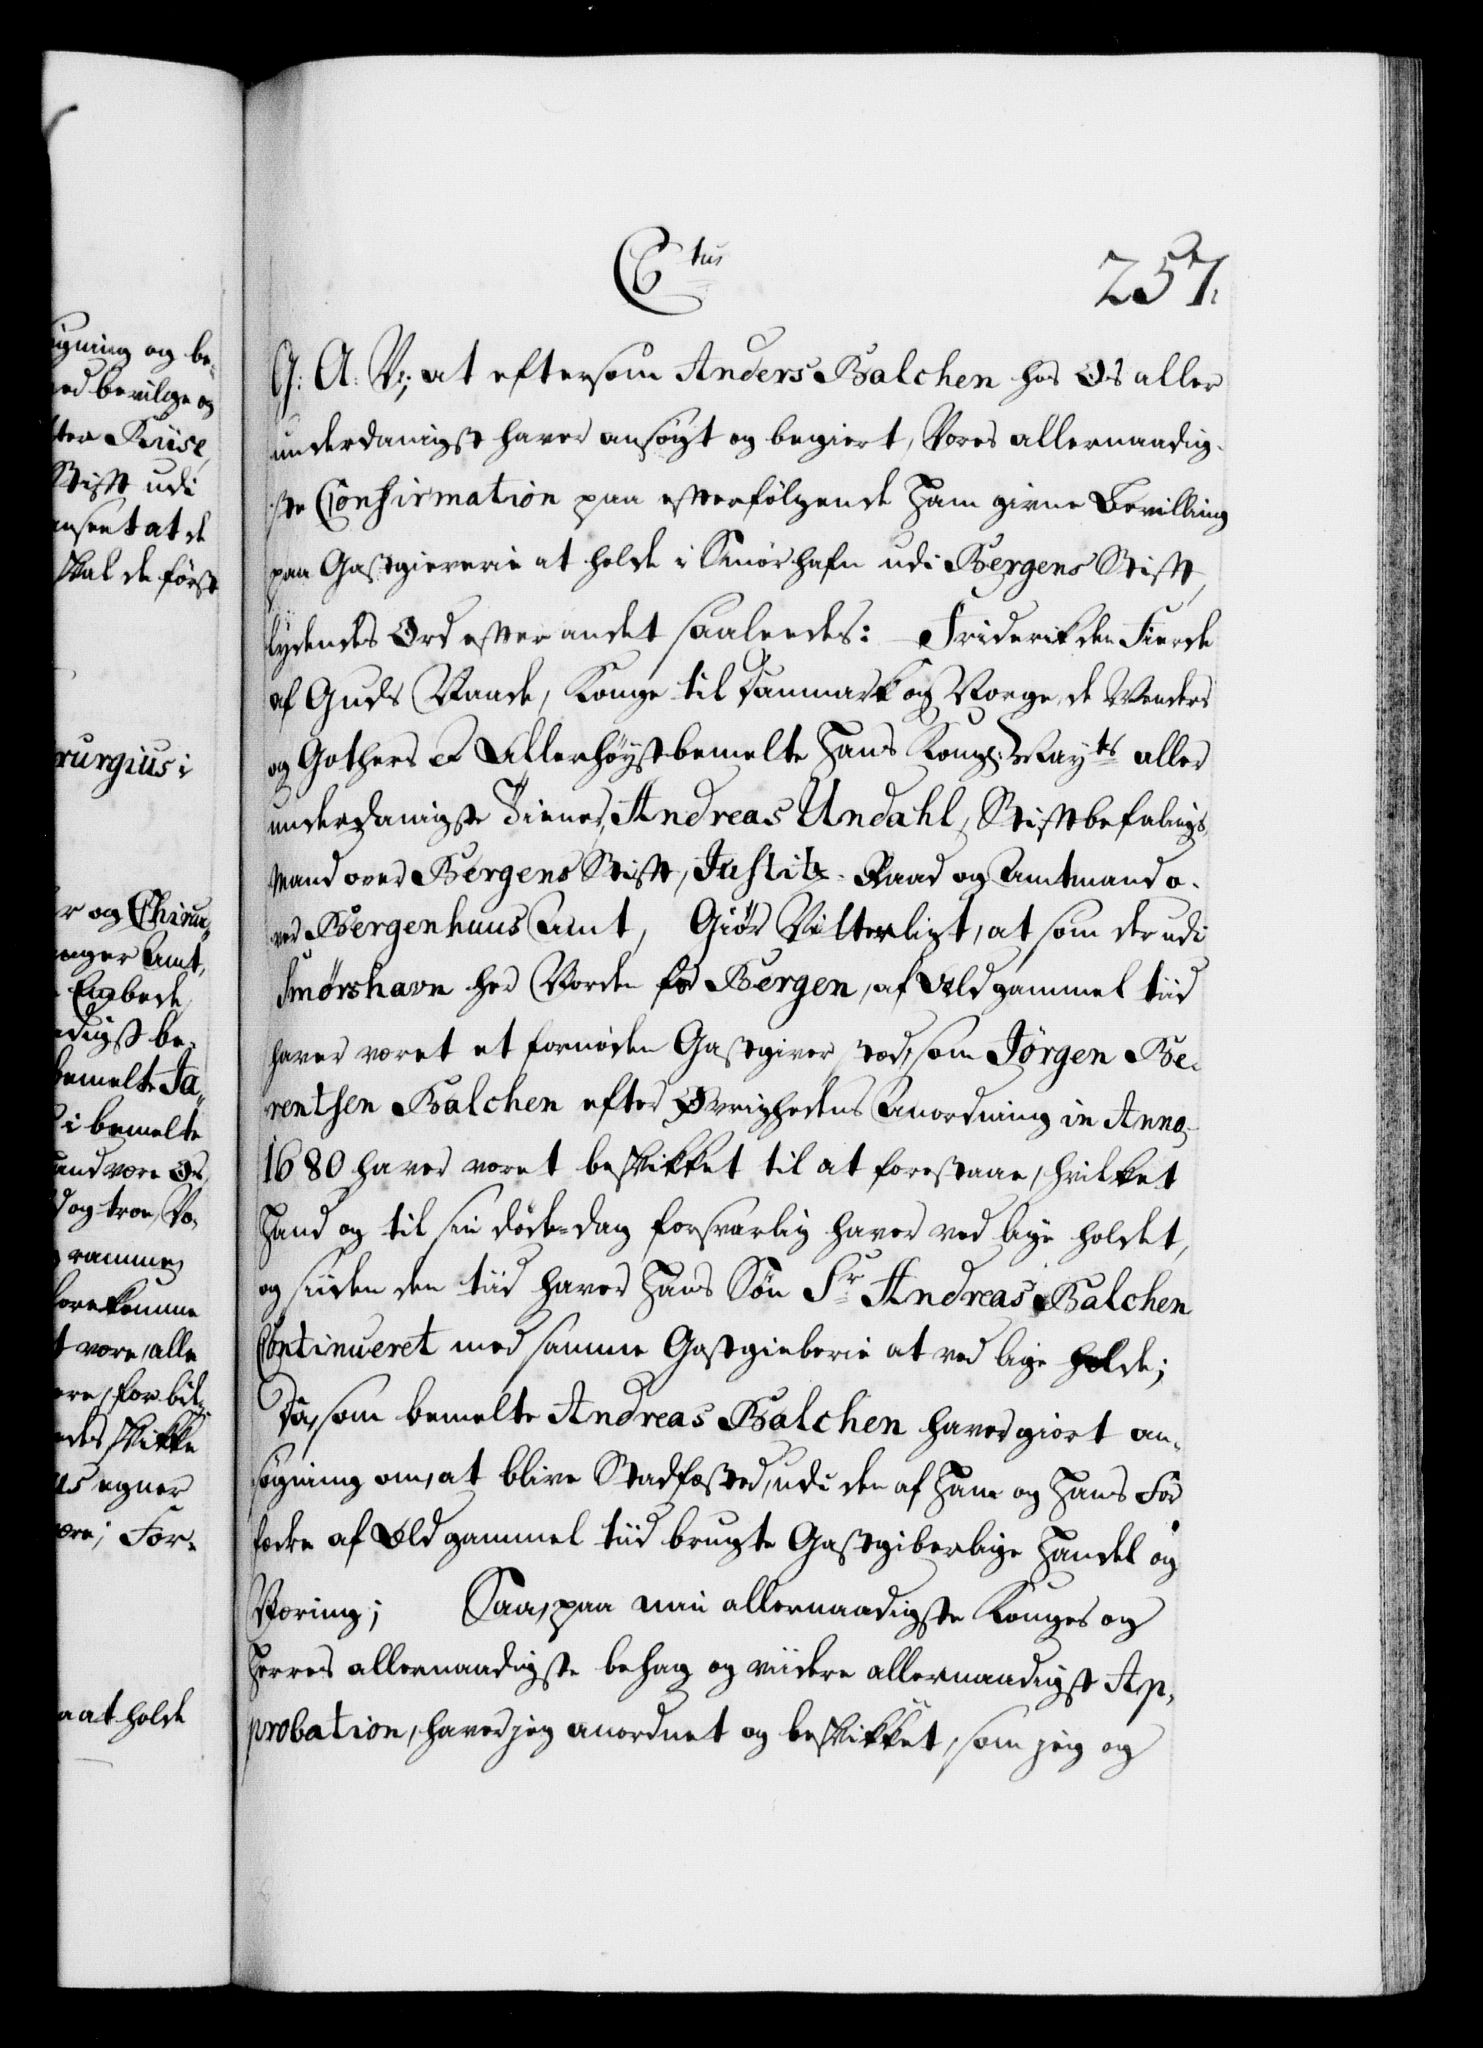 C6tus
257.
G: A: V; at eftersom Anders Balchen hos Os aller
underdanigst haver ansøgt og begiert, Vores allernaadig-
ste Confirmation paa efterfølgende Ham givne Bevilling
paa Gastgieverie at holde i Smørhafn udi Bergens Stift,
lydendes Ord efter andet saaledes: Friderik den Fierde
af Guds Naade, Konge til Danmark og Norge, de Venders
og Gothers & Allerhøystbemelte Hans Kongl: Mayts aller
underdanigste Tiener, Andreas Undahl, Stiftbefalings-
Mand over Bergens Stift, Justitz-Raad og Amtmand o-
ver Bergenhuus Amt, Giør Vitterligt, at som der udi
Smørshavn her Norden for Bergen, af Ald gammel tiid
haver været et fornøden Gastgiver stæd, som Jørgen Be-
rentsen Balchen efter Øvrighedens Anordning in Anno
1680 haver været beskikket til at forestaae, hvilket
Hand og til sin døde-dag forsvarlig haver ved lige holdet,
og siiden den tiid haver Hans Søn Sr Andreas Balchen
Continueret med samme Gastgieberie at ved lige holde;
Da, som bemelte Andreas Balchen haver giort an-
søgning om, at blive Stadfæsted, udi den af Ham og Hans For
fædre af Ald gammel tiid brugte Gastgiberlige Handel og
Næring; Saa, paa min allernaadigste Konges og
Herres allernaadigste behag og viidere allernaadigst Ap-
probation, haver jeg anordnet og beskikket, som jeg og
igning og be-
ed bevilge og
ter Kriise,
Stift udi
anseet at de
skal de først
rurgius i
r og Chirur-
anger Amt,
Embede
adigst be-
bemelte Ja-
i bemelte
and være Os
d og troe, Vo-
g rammes
forekomme
t være, alle
ere, forbil-
edes skikke
us egner
ære; For-
aa at holde